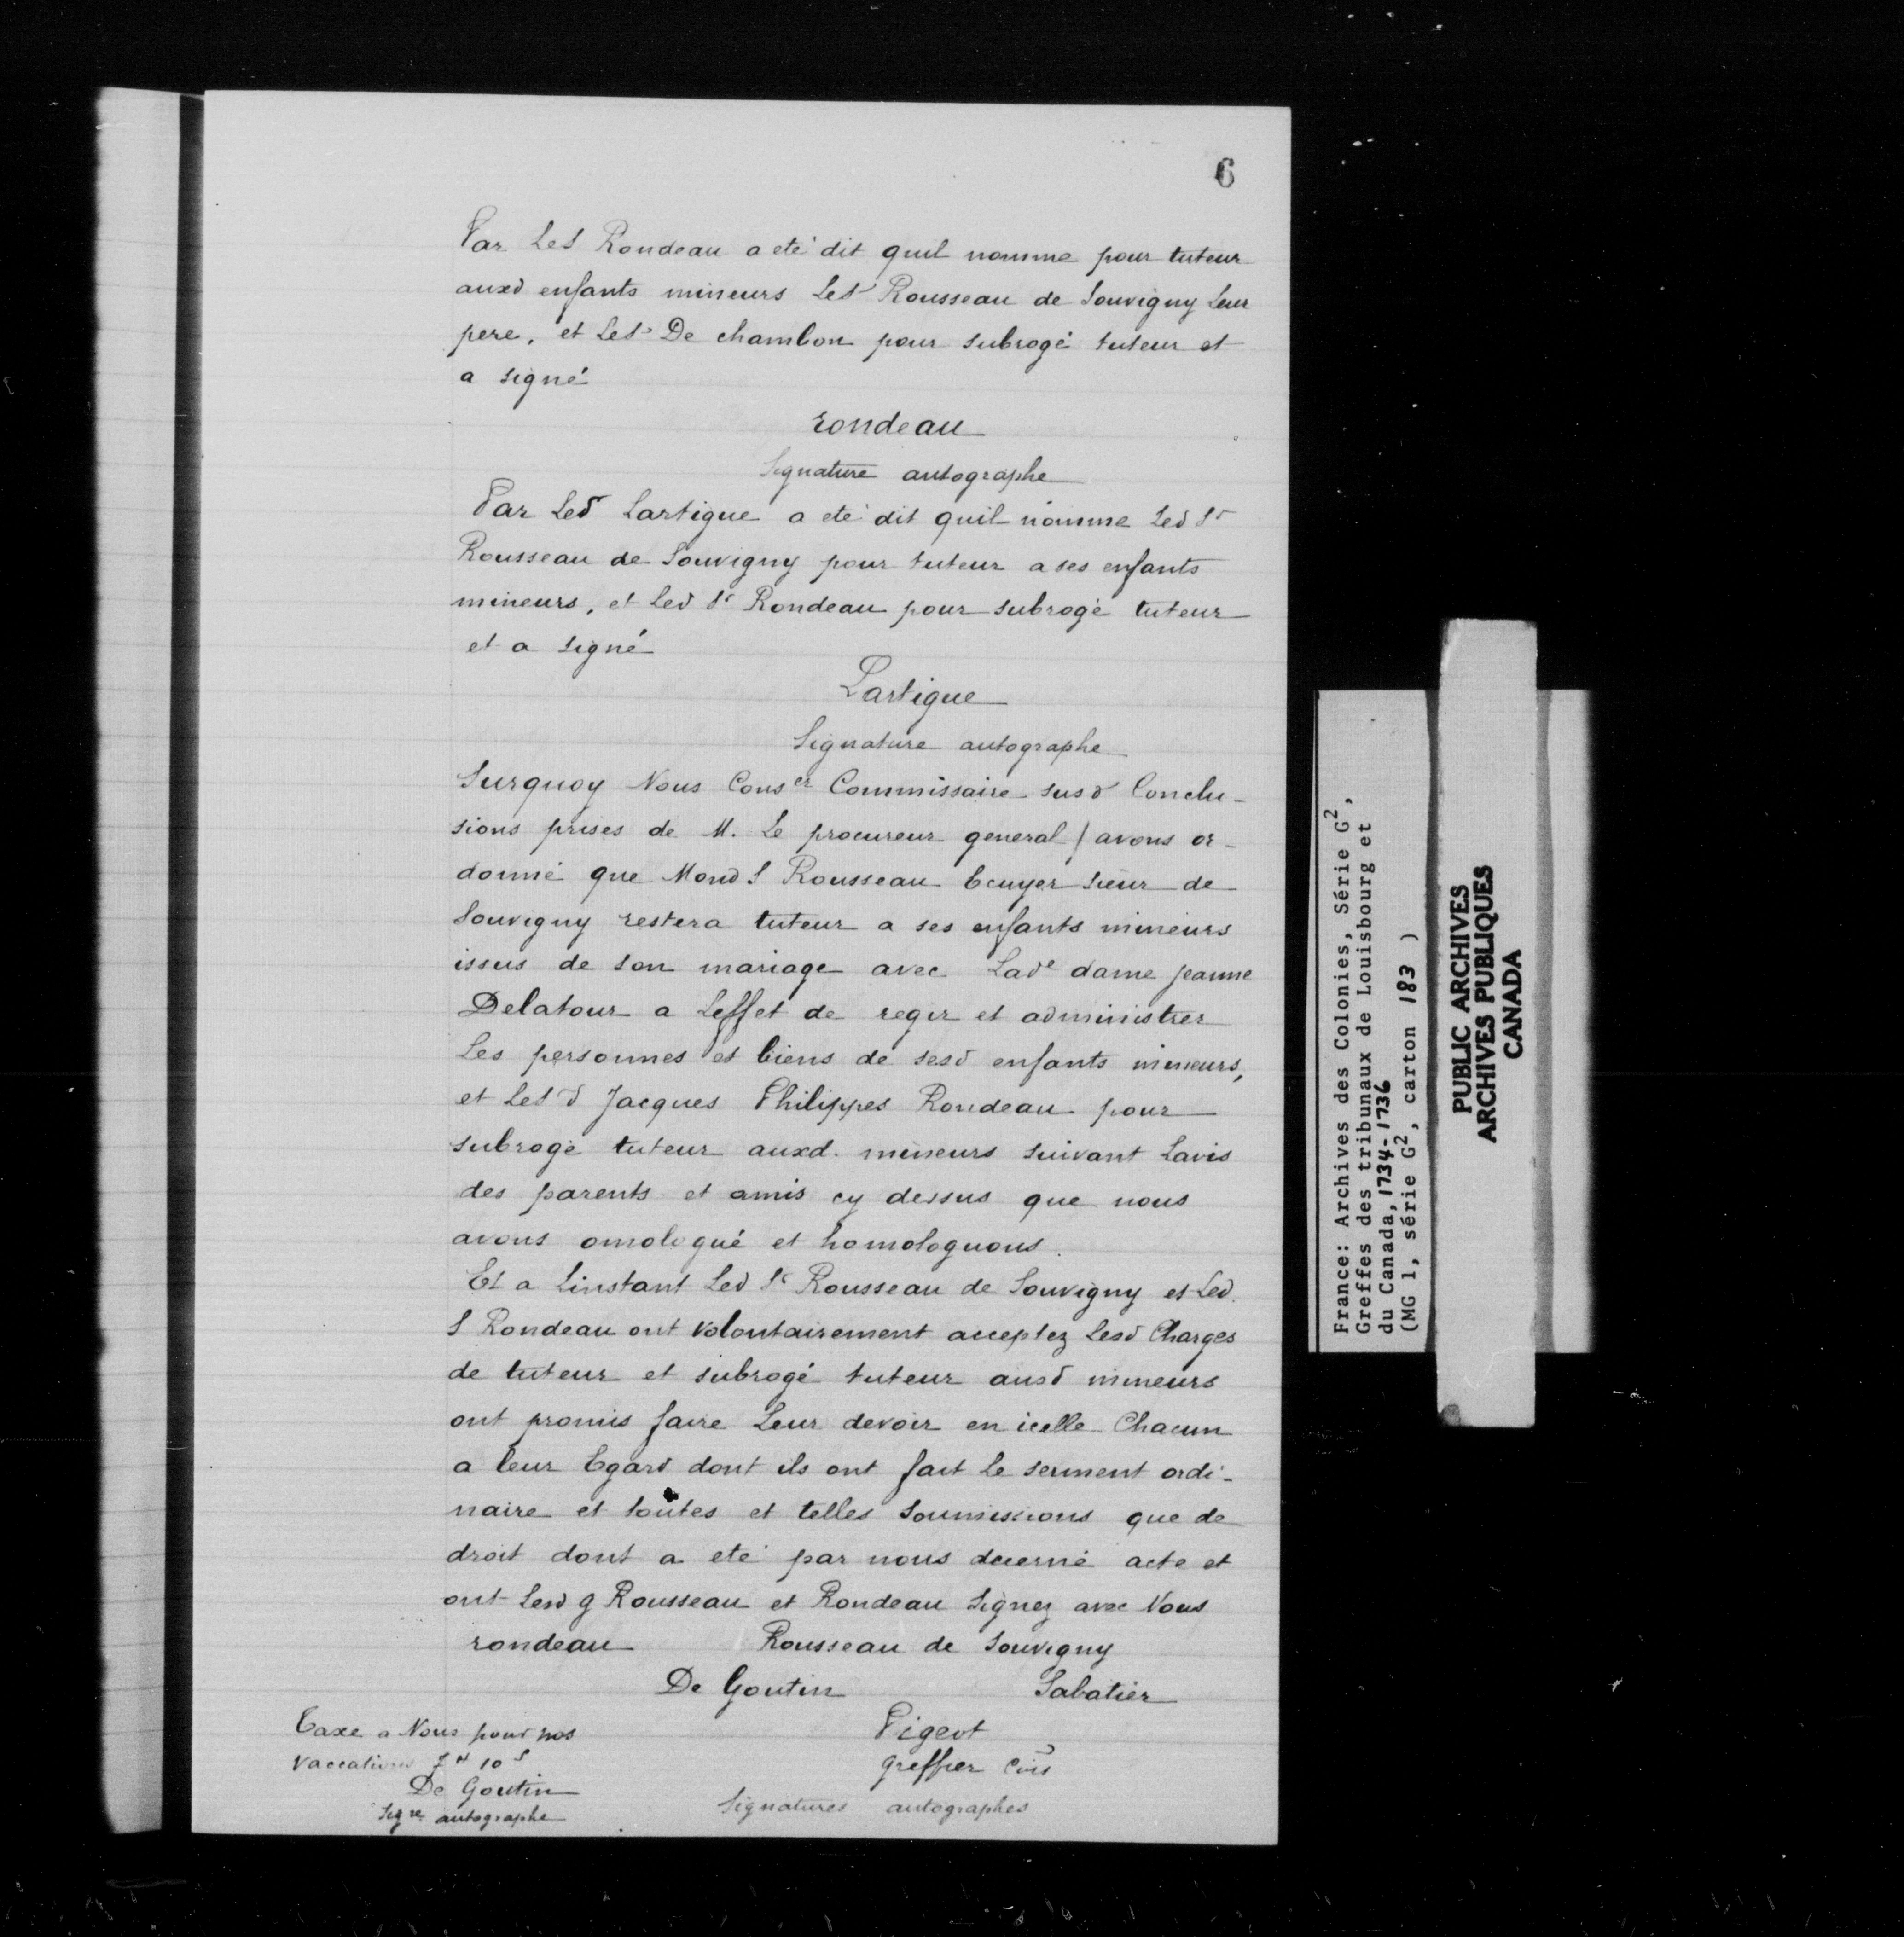 6
Par Le S Rondeau a eté dit quil nomme pour tuteur
auxd enfants mineurs Le Sr Rousseau de Souvigny Leur
pere, et Le Sr De chambon pour subrogé tuteur et
a signé
rondeau
Signature autographe
Par Led Lartigue a eté dit quil nomme Led Sr
Rousseau de Souvigny pour tuteur a ses enfants
mineurs, et Led Sr Rondeau pour subrogé tuteur
et a signé
Lartigue
Signature autographe
Surquoy Nous Conser Commissaire susd Conclu-
sions prises de M. Le procureur general / avons or-
donné que Mond S Rousseau Ecuyer sieur de
Souvigny restera tuteur a ses enfants mineurs
issus de son mariage avec Lade dame jeanne
Delatour a Leffet de regir et administrer
Les personnes et biens de sesd enfants mineurs,
et Le S d Jacques Philippes Rondeau pour
subrogé tuteur auxd. mineurs suivant Lavis
des parents et amis cy dessus que nous
avons omologué et homologuons.
Et a Linstant Led Sr Rousseau de Souvigny et Led.
S Rondeau ont volontairement acceptez Lesd Charges
de tuteur et subrogé tuteur ausd mineurs
ont promis faire Leur devoir en icelle Chacun
a leur Egard dont ils ont fait Le serment ordi-
naire et toutes et telles soumissions que de
droit dont a eté par nous decerné acte et
ont Lesd Rousseau et Rondeau Signez avec Nous
rondeau Rousseau de Souvigny
De Goutin Sabatier
Taxe a Nous pour nos
vaccations 7# 10s
De Goutin
Signe autographe
Pigeot
greffier
Signatures autographes
France: Archives des Colonies, Série G2,
Greffes des tribunaux de Louisbourg et
du Canada, 1734-1736
(MG 1, série G2, carton 183 )
PUBLIC ARCHIVES
ARCHIVES PUBLIQUES
CANADA